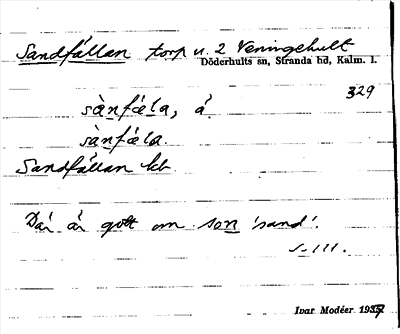 Sandfällan torp u. 2 Veningehult
Döderhults sn, Stranda hd, Kalm. l.
329
sànfǽla, á
sànfǽla.
Sandfällan kb
Där är gott om son 'sand'.
s. III.
Ivar Modéer 1937